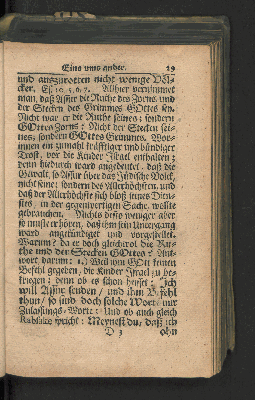 Eins ums ander. 19
und auszurotten nicht wenige Völ-
cker. Es. 10. 5. 6. 7. Allhier vernimmet
man, daß Assur die Ruthe des Zorns und
der Stecken des Grimmes GOttes sey.
Nicht war er die Ruthe seines; sondern
GOttes Zorns: Nicht der Stecken sei-
nes, sondern GOttes Grimmes. Wor-
innen ein zumahl kräfftiger und bündiger
Trost, vor die Kinder Israel enthalten;
denn hiedurch ward angedeutet, daß die
Gewalt, so Assur über das Jüdische Volck,
nicht seine; sondern des Allerhöchsten, und
daß der Allerhöchste sich bloß seines Diens-
tes, in der gegenwertigen Sache, wolle
gebrauchen. Nichts desto weniger aber
so muste er hören, daß ihm sein Untergang
ward angekündiget und vorgestellet.
Warum? da er doch gleichwol die Ru-
the und der Stecken GOttes? Ant-
wort, darum: 1.) Weil vom GOtt keinen
Befehl gegeben, die Kinder Israel zu be-
kriegen; denn ob es schon heisset: Ich
will Assur senden, und ihm Befehl
thun, so sind doch solche Wort, nur
Zulassungs-Worte: Und ob auch gleich
Rabsake spricht: Meynest du, daß ich
D 3 ohn